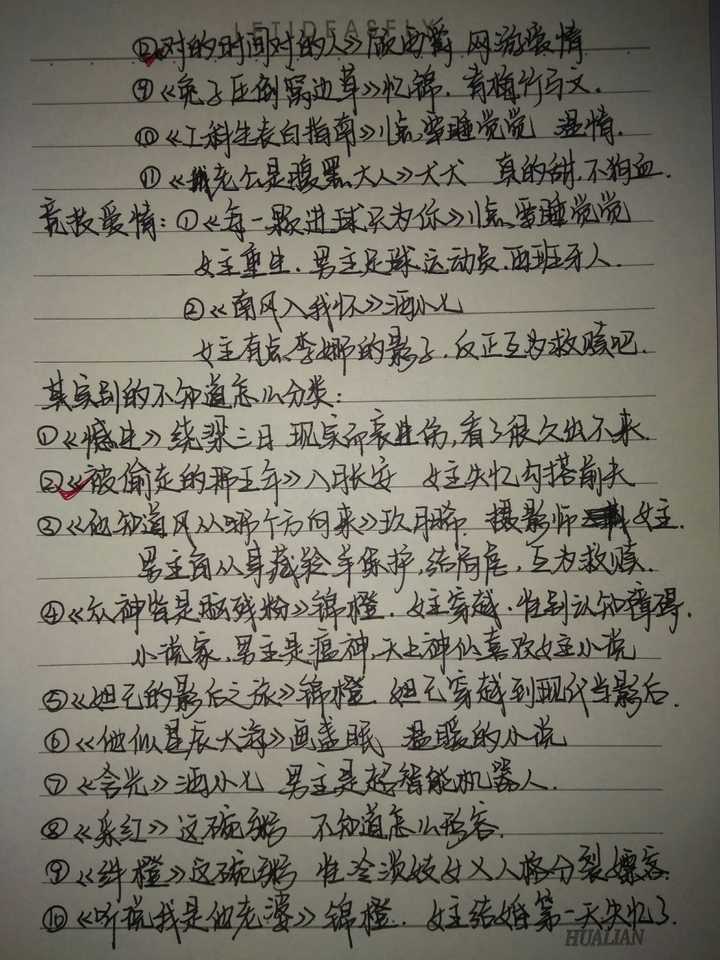 LETIDEASFLY
⑫对的时间对的人》顾西爵 网游爱情
⑨《兔子压倒窝边草》忆锦. 青梅竹马文.
⑩《工科生表白指南》小点,要睡觉觉 温情.
⑪《我老公是腹黑大人》犬犬 真的甜,不狗血.
竞技爱情:①《每一颗进球只为你》小点,要睡觉觉
女主重生.男主足球运动员.西班牙人.
②《南风入我怀》酒小七
女主有点李娜的影子.反正互为救赎吧.
其实别的不知道怎么分类:
①《憾生》绕梁三日 现实而哀悲伤,看了很久出不来.
②《被偷走的那五年》入月长安 女主失忆勾搭前夫
③《他知道风从哪个方向来》玖月晞. 摄影师 女主.
男主角从事藏羚羊保护,结局虐,互为救赎.
④《众神皆是脑残粉》锦橙.女主穿越.性别认知障碍.
小说家.男主是瘟神,天上神仙喜欢女主小说
⑤《妲己的影后之旅》锦橙.妲己穿越到现代当影后.
⑥《他似星辰大海》画盏眠 温暖的小说
⑦《含光》酒小七 男主是超智能机器人.
⑧《采红》这碗粥 不知道怎么形容.
⑨《纤橙》这碗粥 性冷淡妓女×人格分裂嫖客.
⑩《听说我是他老婆》锦橙. 女主结婚第一天失忆了.
HUALIAN